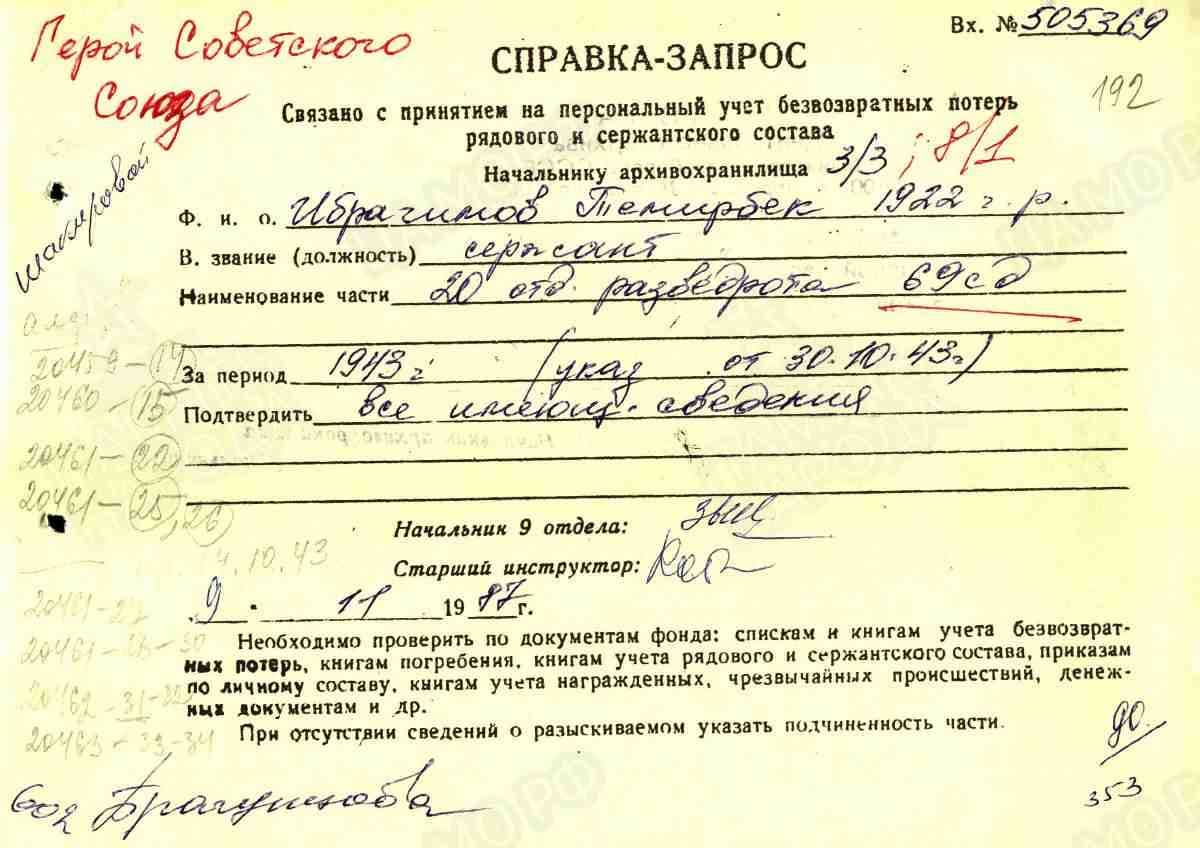 Герой Советского
Союза
Вх. № 505369
СПРАВКА-ЗАПРОС
192
Связано с принятием на персональный учет безвозвратных потерь
рядового и сержантского состава
Начальнику архивохранилища 3/3 ; 8/1
Шакировой
Ф. и. о. Ибрагимов Темирбек 1922 г. р.
В. звание (должность) сержант
Наименование части 20 отд. разведрота 69 сд
За период 1943 г (указ от 30.10.43 г)
20459 - 14
20460 - 15
Подтвердить все имеющ. сведения
20461 - 22
20461 - 25, 26
Начальник 9 отдела:
14.10.43
Старший инструктор:
9 . 11 1987 г.
20461 - 27
Необходимо проверить по документам фонда: спискам и книгам учета безвозврат-
ных потерь, книгам погребения, книгам учета рядового и сержантского состава, приказам
по личному составу, книгам учета награжденных, чрезвычайных происшествий, денеж-
ных документам и др.
20463 - 33-34
При отсутствии сведений о разыскиваемом указать подчиненность части.
353
ЦАМО РФ